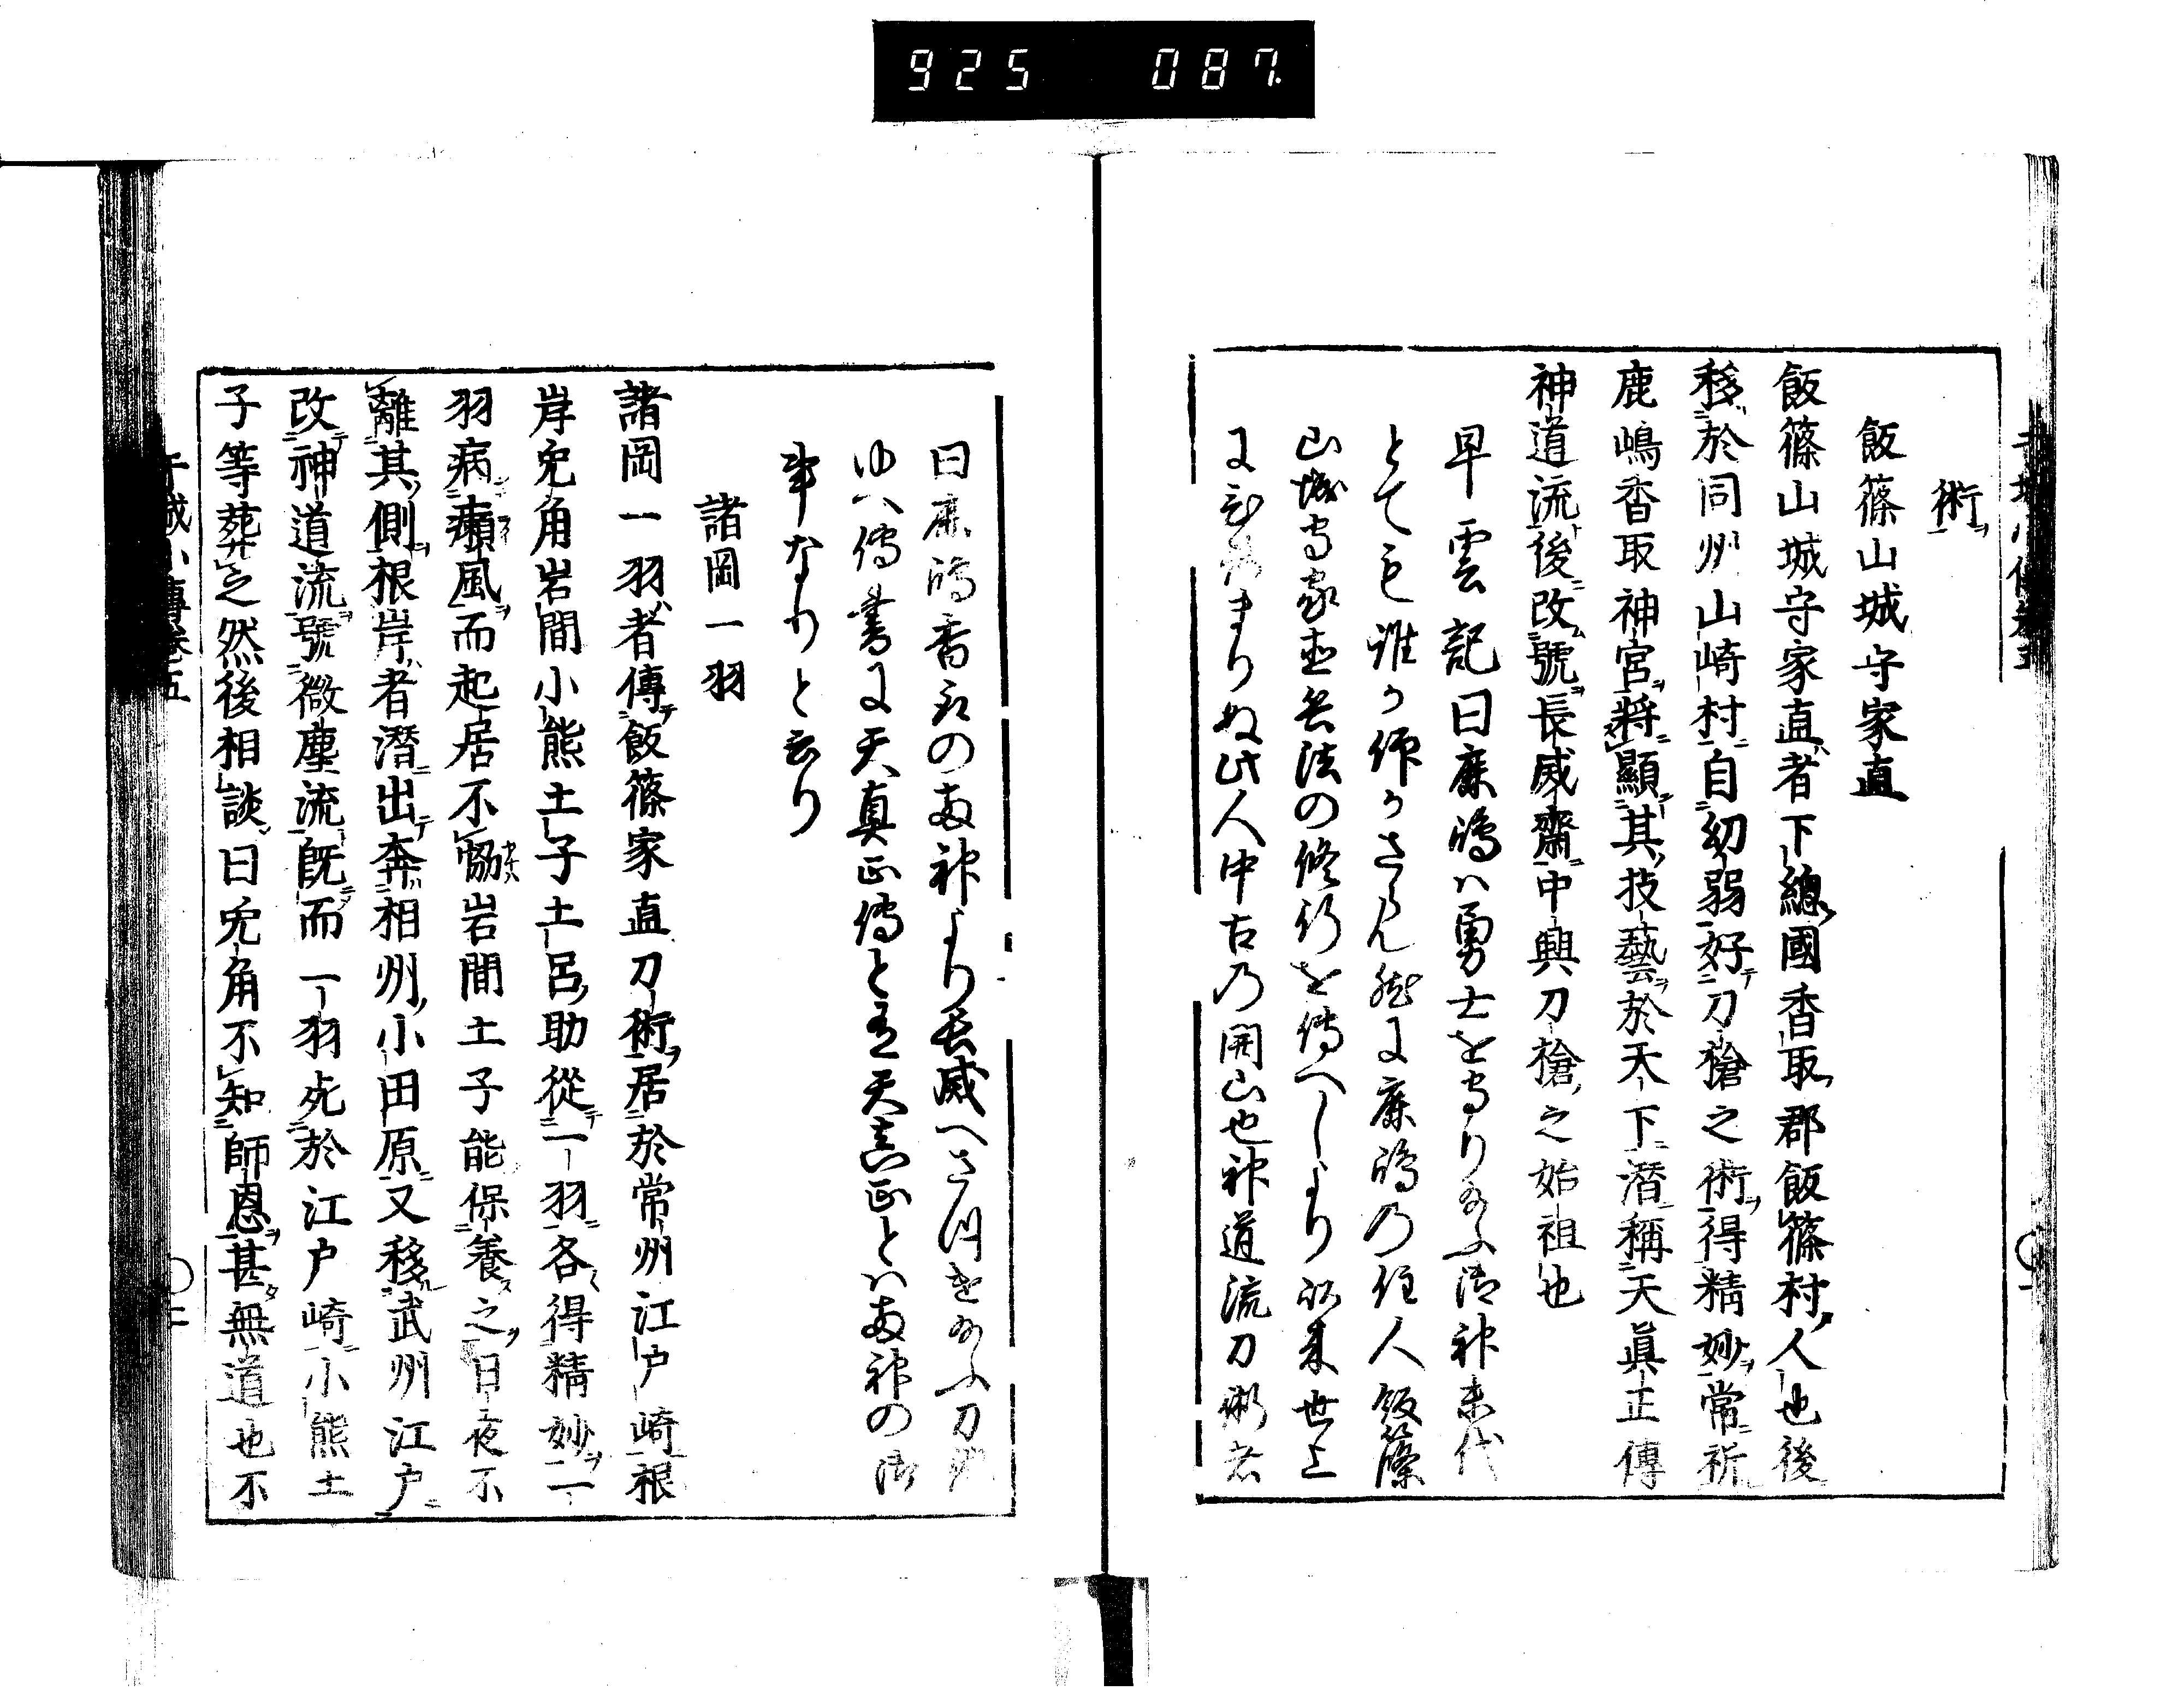 925 087
術
飯篠山城守家直
飯篠山城守家直者下總國香取郡飯篠村人也後
移於同州山崎村自幼弱好刀槍之術得精妙常祈
鹿嶋香取神宮將顯其技藝於天下潛稱天眞正傳
神道流後改號長威齋中興刀槍之始祖也
早雲記曰鹿嶋ハ勇士を守り給ふ御神末代
とても誰か仰かさらん然に鹿嶋の住人飯篠
山城守家直兵法の修行を傳へしより以来世上
にひろまりぬ此人中古の開山也神道流刀術者
曰鹿嶋香取の両神より長威へさつけ給ふ刀術
ゆへ傳書に天真正傳と云天真正とハ両神の御
事なりと云り
諸岡一羽
諸岡一羽者傳飯篠家直刀術居於常州江戸崎根
岸兎角岩間小熊土子土呂助從一羽各得精妙一
羽病癩風而起居不協岩間土子能保養之日夜不
離其側根岸者潛出奔相州小田原又移武州江戸
改神道流號微塵流既而一羽死於江戸崎小熊土
子等葬之然後相談曰兎角不知師恩甚無道也不
干城小傳卷五